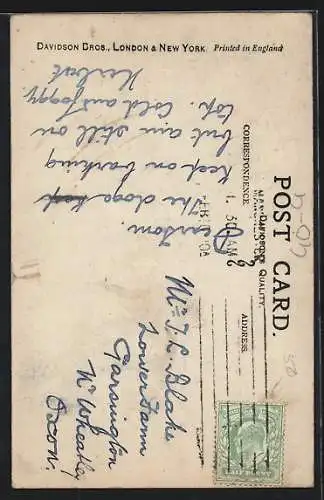 DAVIDSON BROS., LONDON & NEW YORK. Printed in England
POST CARD.
DAVIDSON'S
QUALITY.
CORRESPONDENCE.
ADDRESS.
The dogs keep
keep on barking
but am still on
top. Cold and foggy
Herbert
Mrs T. C. Blake
Lower Farm
Garsington
Nr Wheatley
Oxon.